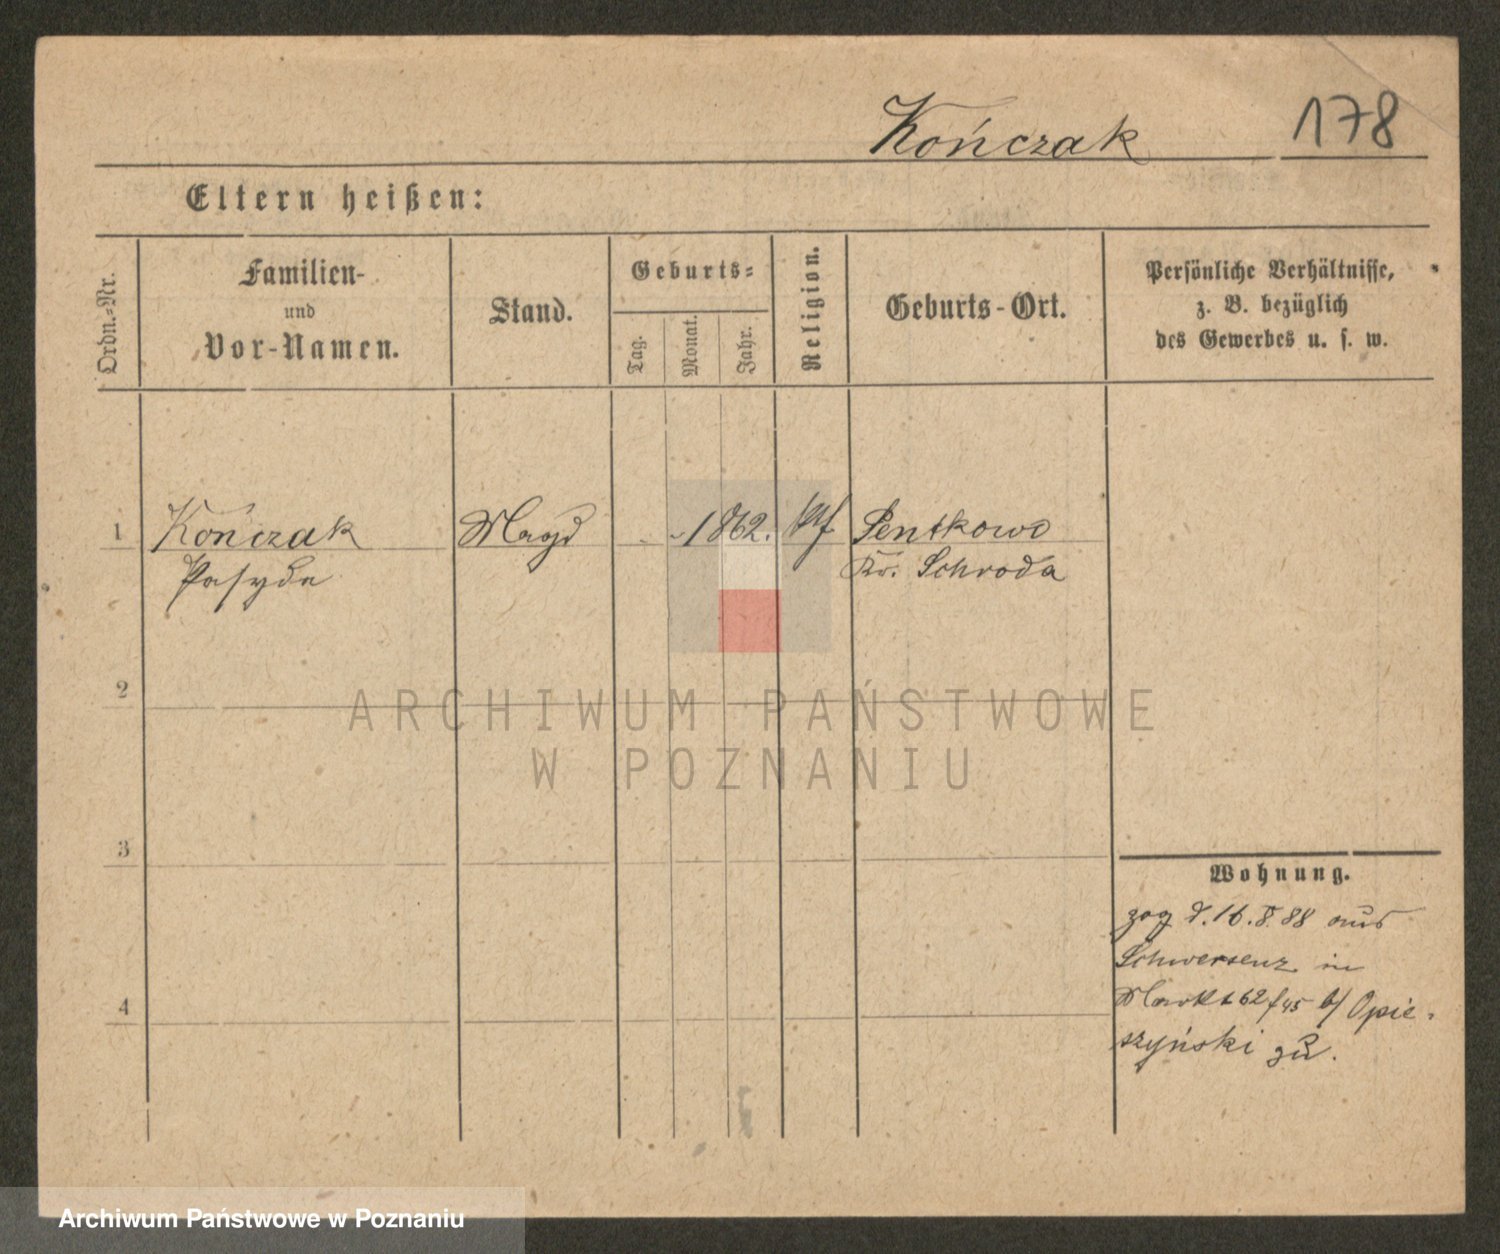 Kończak 178
Eltern heißen:
Ordn.-Nr.
Familien-
und
Vor-Namen.
Stand.
Geburts-
Tag.
Monat.
Jahr.
Religion.
Geburts-Ort.
Persönliche Verhältnisse,
z. B. bezüglich
des Gewerbes u. s. w.
1 Kończak Magd 1862. Pentkowo
Kr. Schroda
2
ARCHIWUM PAŃSTWOWE
W POZNANIU
3
Wohnung.
zog d. 16. 8. 88 aus
Schwersenz in
Markt 62/45 b/ Opie-
4
szyński zu.
Archiwum Państwowe w Poznaniu